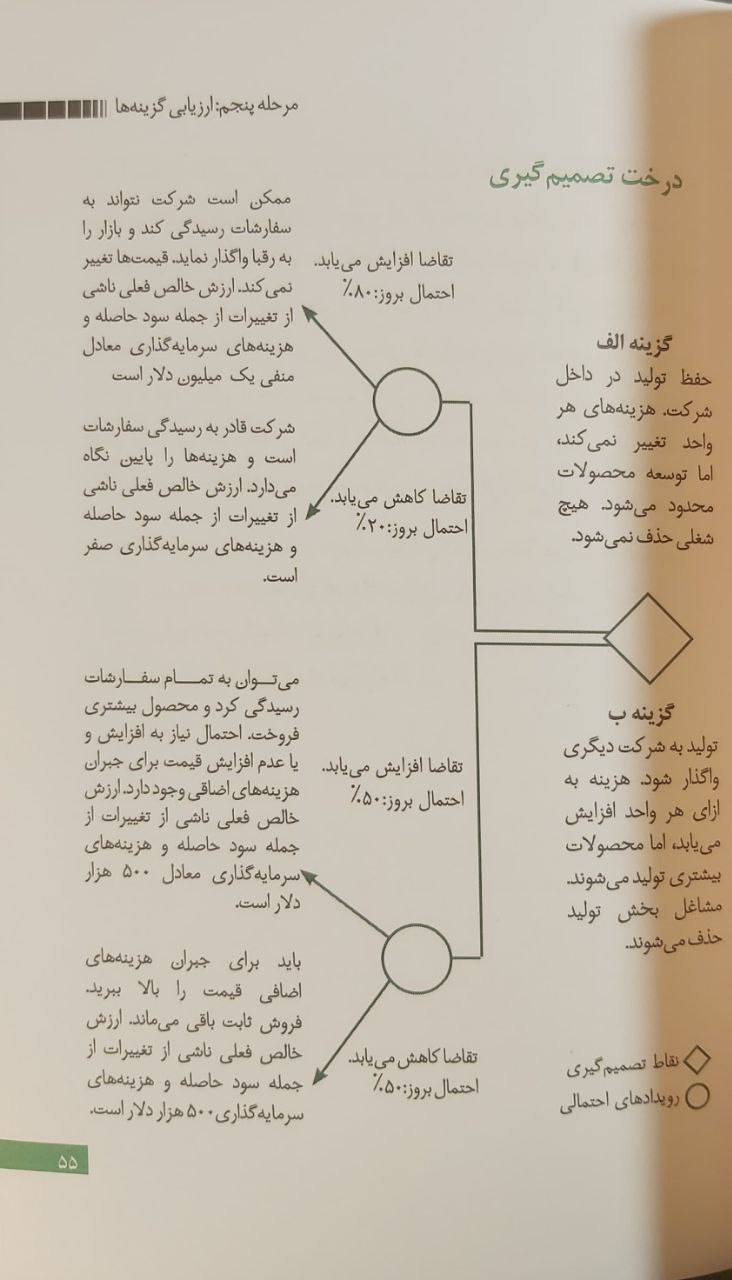 مرحله پنجم: ارزیابی گزینه‌ها
درخت تصمیم‌گیری
گزینه الف
حفظ تولید در داخل
شرکت. هزینه‌های هر
واحد تغییر نمی‌کند،
اما توسعه محصولات
محدود می‌شود. هیچ
شغلی حذف نمی‌شود.
تقاضا افزایش می‌یابد.
احتمال بروز: ۸۰٪
ممکن است شرکت نتواند به
سفارشات رسیدگی کند و بازار را
به رقبا واگذار نماید. قیمت‌ها تغییر
نمی‌کند. ارزش خالص فعلی ناشی
از تغییرات از جمله سود حاصله و
هزینه‌های سرمایه‌گذاری معادل
منفی یک میلیون دلار است
تقاضا کاهش می‌یابد.
احتمال بروز: ۲۰٪
شرکت قادر به رسیدگی سفارشات
است و هزینه‌ها را پایین نگاه
می‌دارد. ارزش خالص فعلی ناشی
از تغییرات از جمله سود حاصله
و هزینه‌های سرمایه‌گذاری صفر
است.
گزینه ب
تولید به شرکت دیگری
واگذار شود. هزینه به
ازای هر واحد افزایش
می‌یابد، اما محصولات
بیشتری تولید می‌شوند.
مشاغل بخش تولید
حذف می‌شوند.
تقاضا افزایش می‌یابد.
احتمال بروز: ۵۰٪
می‌توان به تمام سفارشات
رسیدگی کرد و محصول بیشتری
فروخت. احتمال نیاز به افزایش و
یا عدم افزایش قیمت برای جبران
هزینه‌های اضاقی وجود دارد. ارزش
خالص فعلی ناشی از تغییرات از
جمله سود حاصله و هزینه‌های
سرمایه‌گذاری معادل ۵۰۰ هزار
دلار است.
تقاضا کاهش می‌یابد.
احتمال بروز: ۵۰٪
باید برای جبران هزینه‌های
اضافی قیمت را بالا ببرید.
فروش ثابت باقی می‌ماند. ارزش
خالص فعلی ناشی از تغییرات از
جمله سود حاصله و هزینه‌های
سرمایه‌گذاری ۵۰۰ هزار دلار است.
نقاط تصمیم‌گیری
رویدادهای احتمالی
۵۵